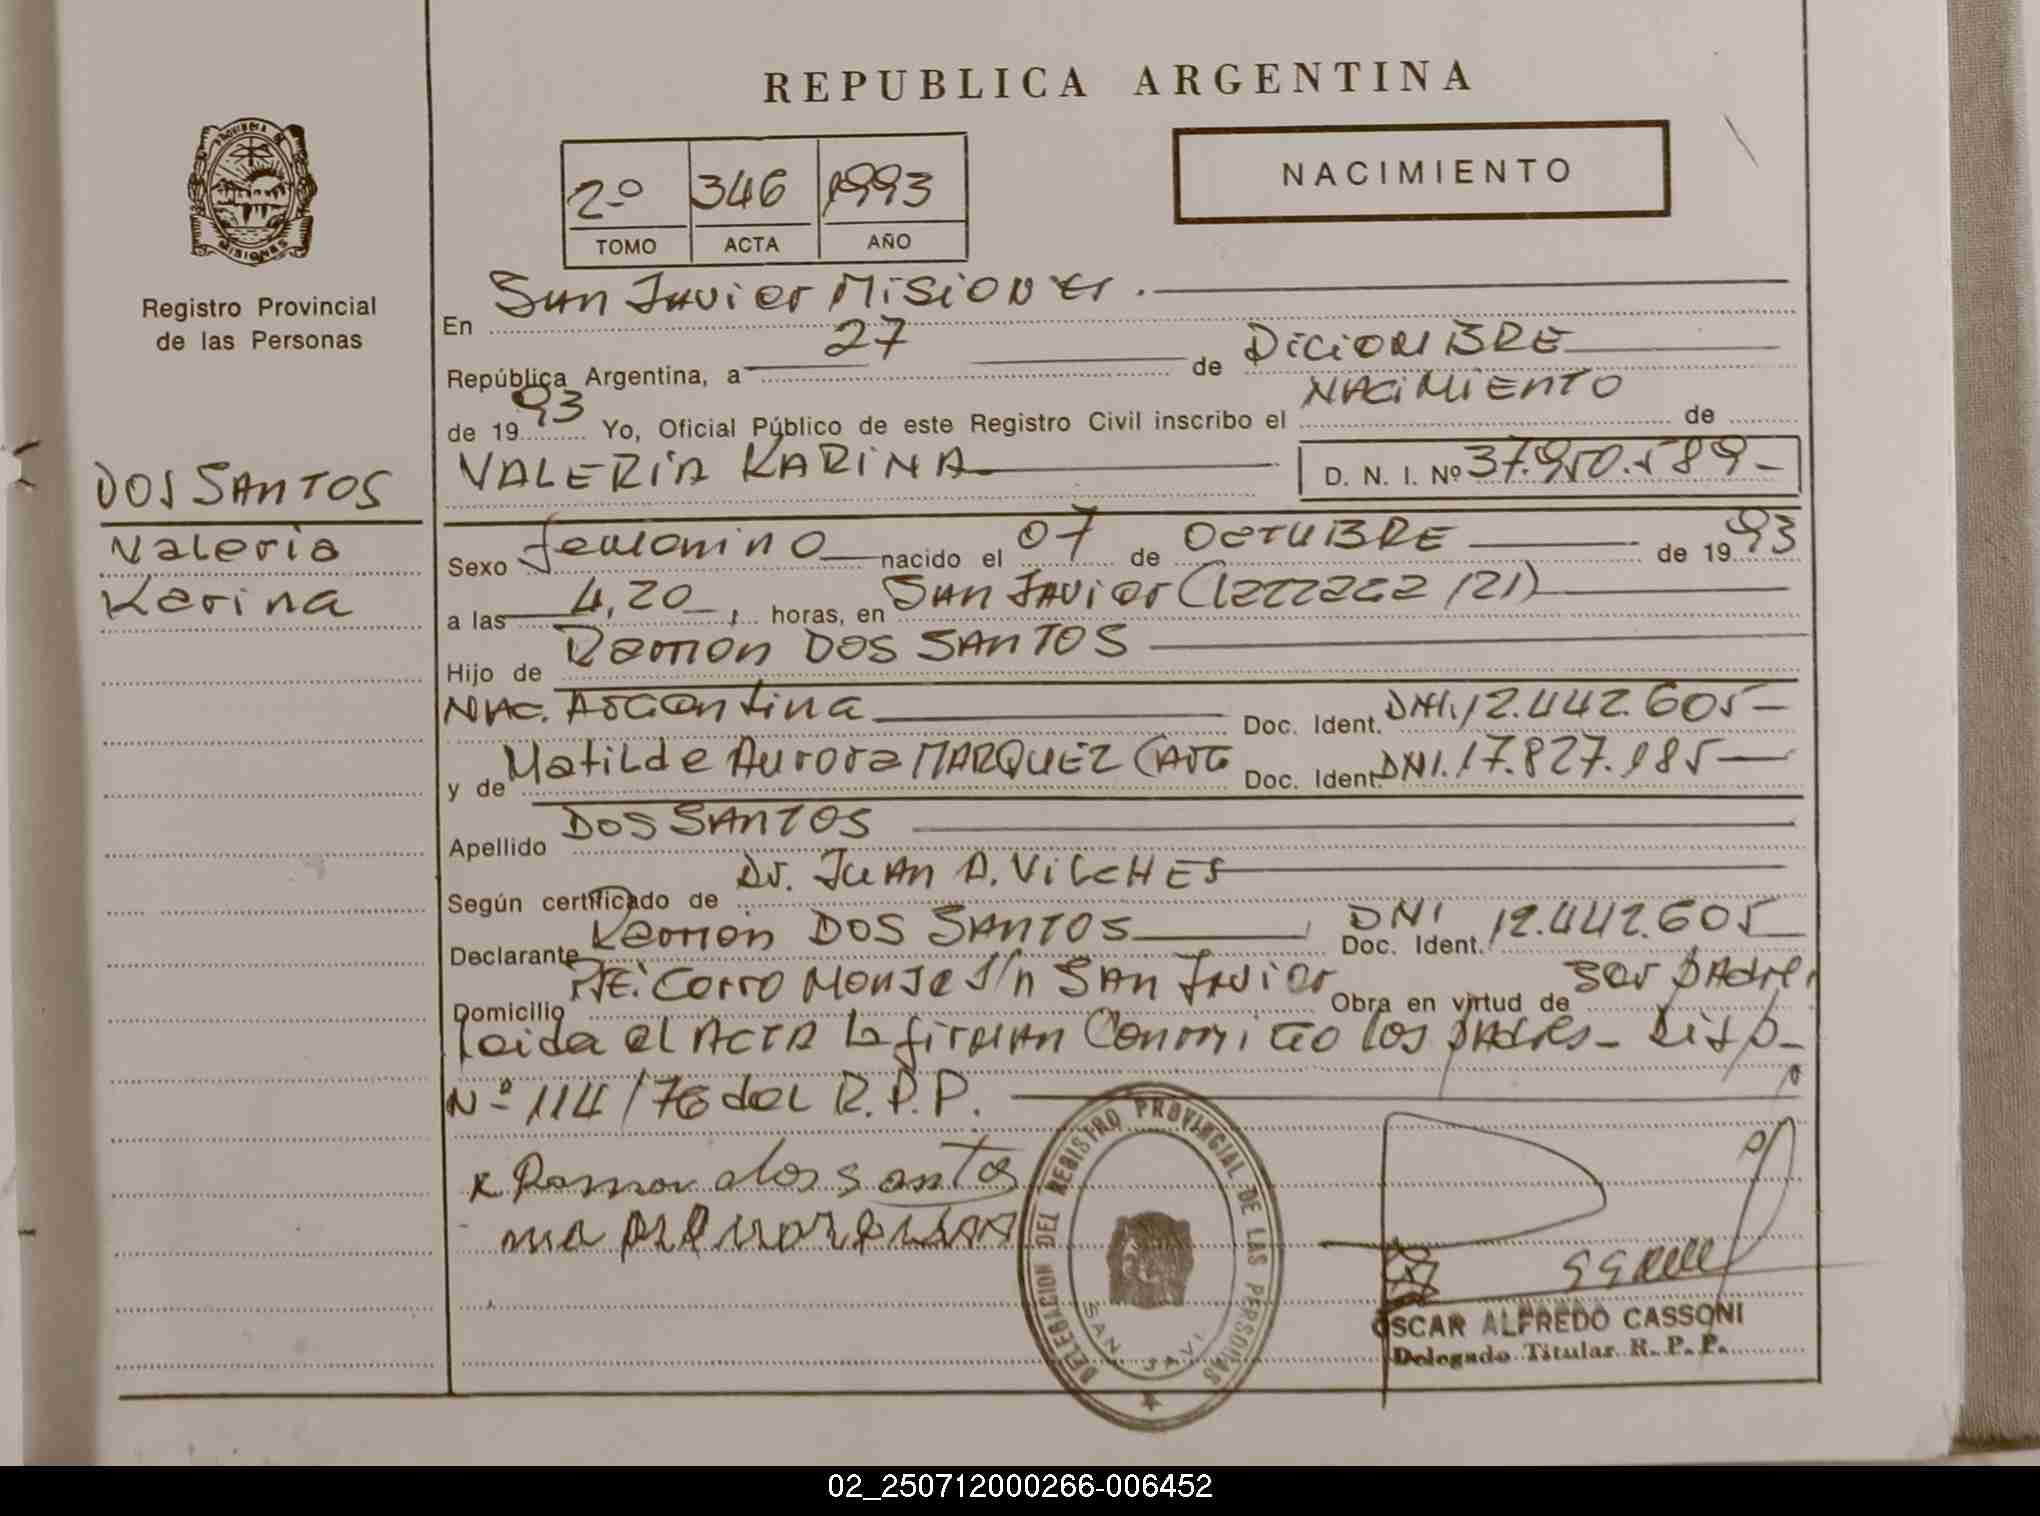 REPUBLICA ARGENTINA
PROVINCIA DE
MISIONES
Registro Provincial
de las Personas
2º 346 1993
TOMO ACTA AÑO
NACIMIENTO
En San Javier Misiones.
República Argentina, a 27 de DiciEMBRE
de 1993 Yo, Oficial Público de este Registro Civil inscribo el NACiMiENTO de
VALERIA KARINA D. N. I. Nº 37.950.589-
DOS SANTOS
Valeria
Karina
Sexo femenino nacido el 07 de OCTUBRE de 1993
a las 4,20 horas, en San Javier
Hijo de Ramon DOS SANTOS
Nac. Argentina Doc. Ident. DNI. 12.442.605-
y de Matilde Aurora MARQUEZ (Arg Doc. Ident. DNI. 17.827.185-
Apellido DOS SANTOS
Según certificado de Dr. Juan A. ViLCHES
Declarante Ramon DOS SANTOS Doc. Ident. DNI 12.442.605-
Domicilio Cerro Monje s/n San Javier Obra en virtud de ser padre,
Leida el ACTA la firman Conmigo los padres- Disp-
Nº 114/76 del R.P.P.
x Ramon dos santos
DELEGACION DEL REGISTRO PROVINCIAL DE LAS PERSONAS
SAN JAVI
OSCAR ALFREDO CASSONI
Delegado Titular R. P. P.
02_250712000266-006452